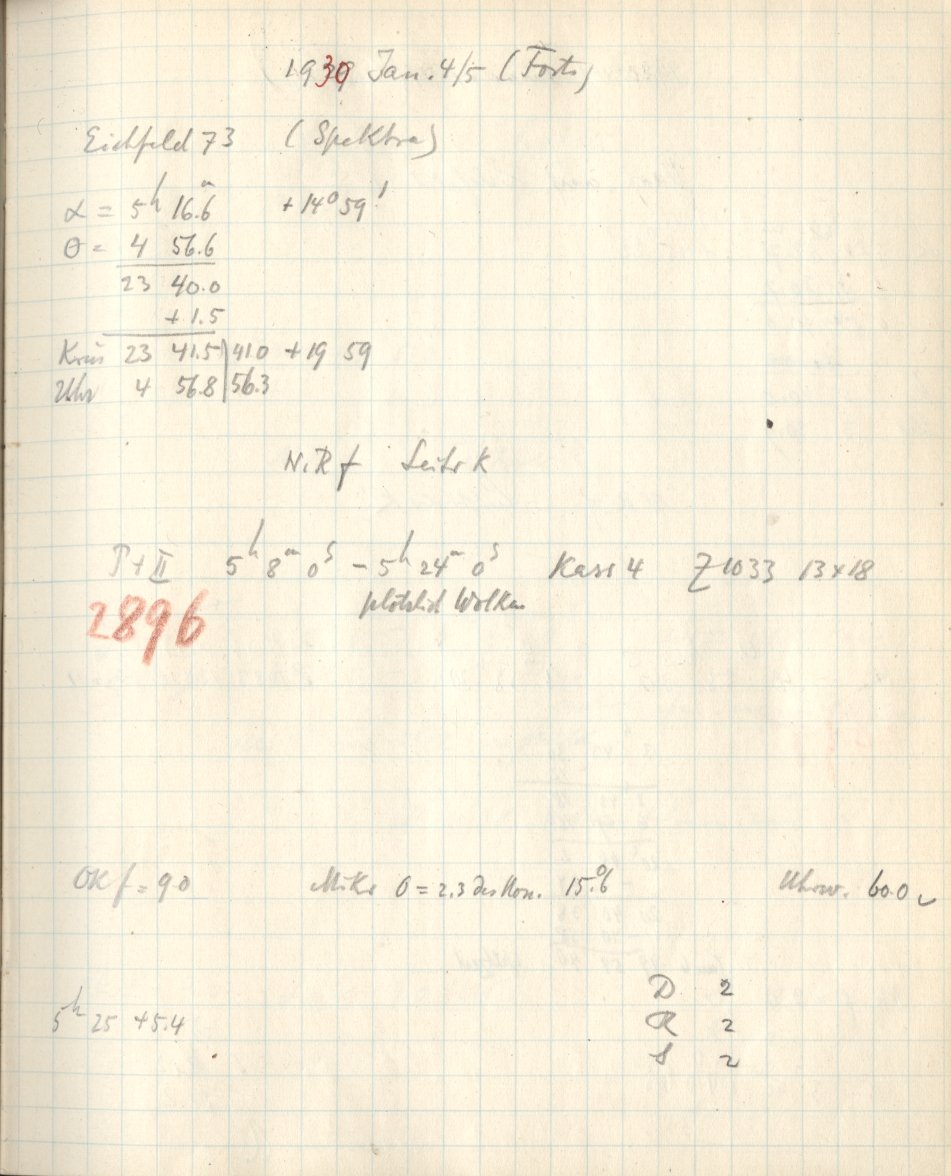 1930 Jan. 4/5 (Forts)
Eichfeld 73 (Spektra)
α = 5h 16.m6 +14° 59'
θ = 4 56.6
23 40.0
+ 1.5
23 41.5 | 41.0 +19 59
Uhr 4 56.8 | 56.3
N.R f Leitr K
I + II 5h 8m 0s - 5h 24m 0s Kass 4 Z 1033 13 x 18
plötzlich Wolken
2896
OK f = 90 Mikr 0 = 2.3 15.°6 Uhrw. 60.0
5h 25 +5.4
D 2
R 2
S 2